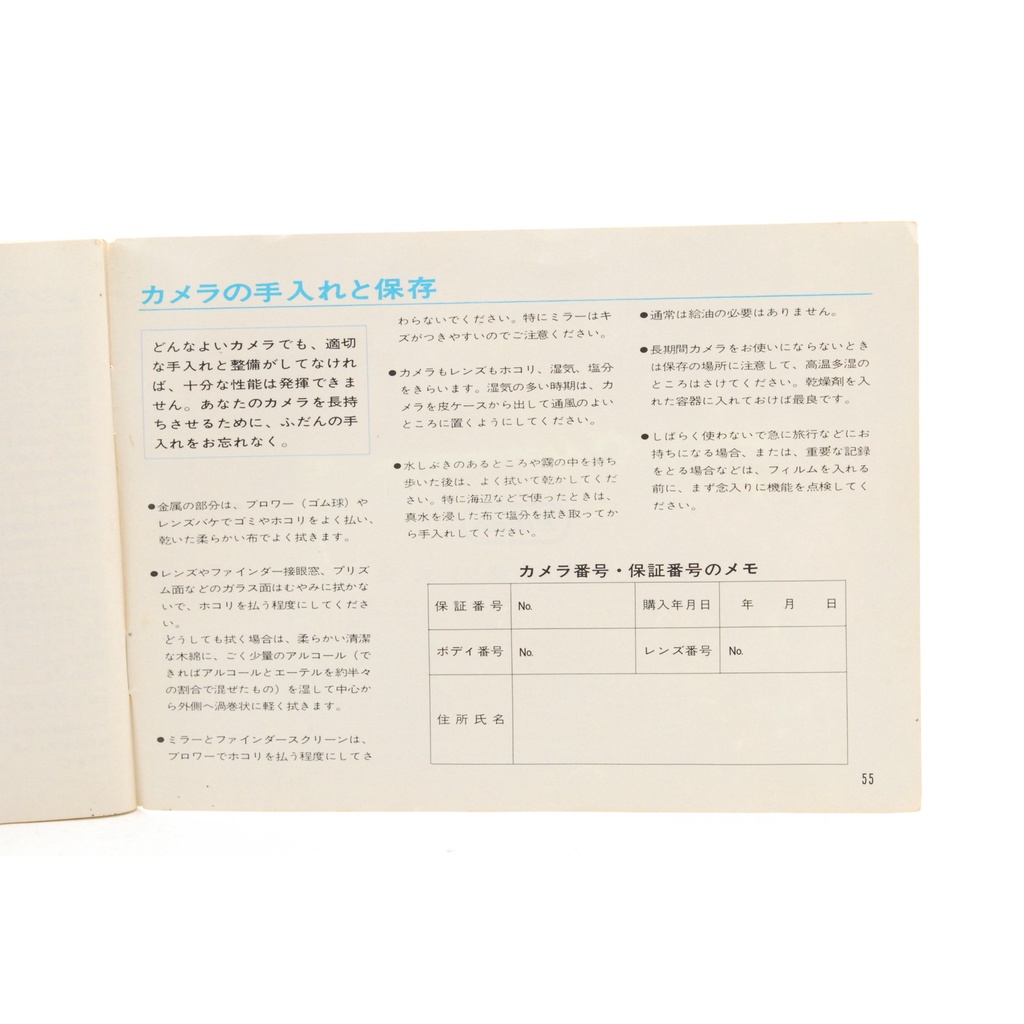 カメラの手入れと保存
どんなよいカメラでも、適切
な手入れと整備がしてなけれ
ば、十分な性能は発揮できま
せん。あなたのカメラを長持
ちさせるために、ふだんの手
入れをお忘れなく。
●金属の部分は、ブロワー（ゴム球）や
レンズバケでゴミやホコリをよく払い、
乾いた柔らかい布でよく拭きます。
●レンズやファインダー接眼窓、プリズ
ム面などのガラス面はむやみに拭かな
いで、ホコリを払う程度にしてくださ
い。
どうしても拭く場合は、柔らかい清潔
な木綿に、ごく少量のアルコール（で
きればアルコールとエーテルを約半々
の割合で混ぜたもの）を湿して中心か
ら外側へ渦巻状に軽く拭きます。
●ミラーとファインダースクリーンは、
ブロワーでホコリを払う程度にしてさ
わらないでください。特にミラーはキ
ズがつきやすいのでご注意ください。
●カメラもレンズもホコリ、湿気、塩分
をきらいます。湿気の多い時期は、カ
メラを皮ケースから出して通風のよい
ところに置くようにしてください。
●水しぶきのあるところや霧の中を持ち
歩いた後は、よく拭いて乾かしてくだ
さい。特に海辺などで使ったときは、
真水を浸した布で塩分を拭き取ってか
ら手入れしてください。
●通常は給油の必要はありません。
●長期間カメラをお使いにならないとき
は保存の場所に注意して、高温多湿の
ところはさけてください。乾燥剤を入
れた容器に入れておけば最良です。
●しばらく使わないで急に旅行などにお
持ちになる場合、または、重要な記録
をとる場合などは、フィルムを入れる
前に、まず念入りに機能を点検してく
ださい。
カメラ番号・保証番号のメモ
保証番号 No. 購入年月日 年 月 日
ボディ番号 No. レンズ番号 No.
住所氏名
55